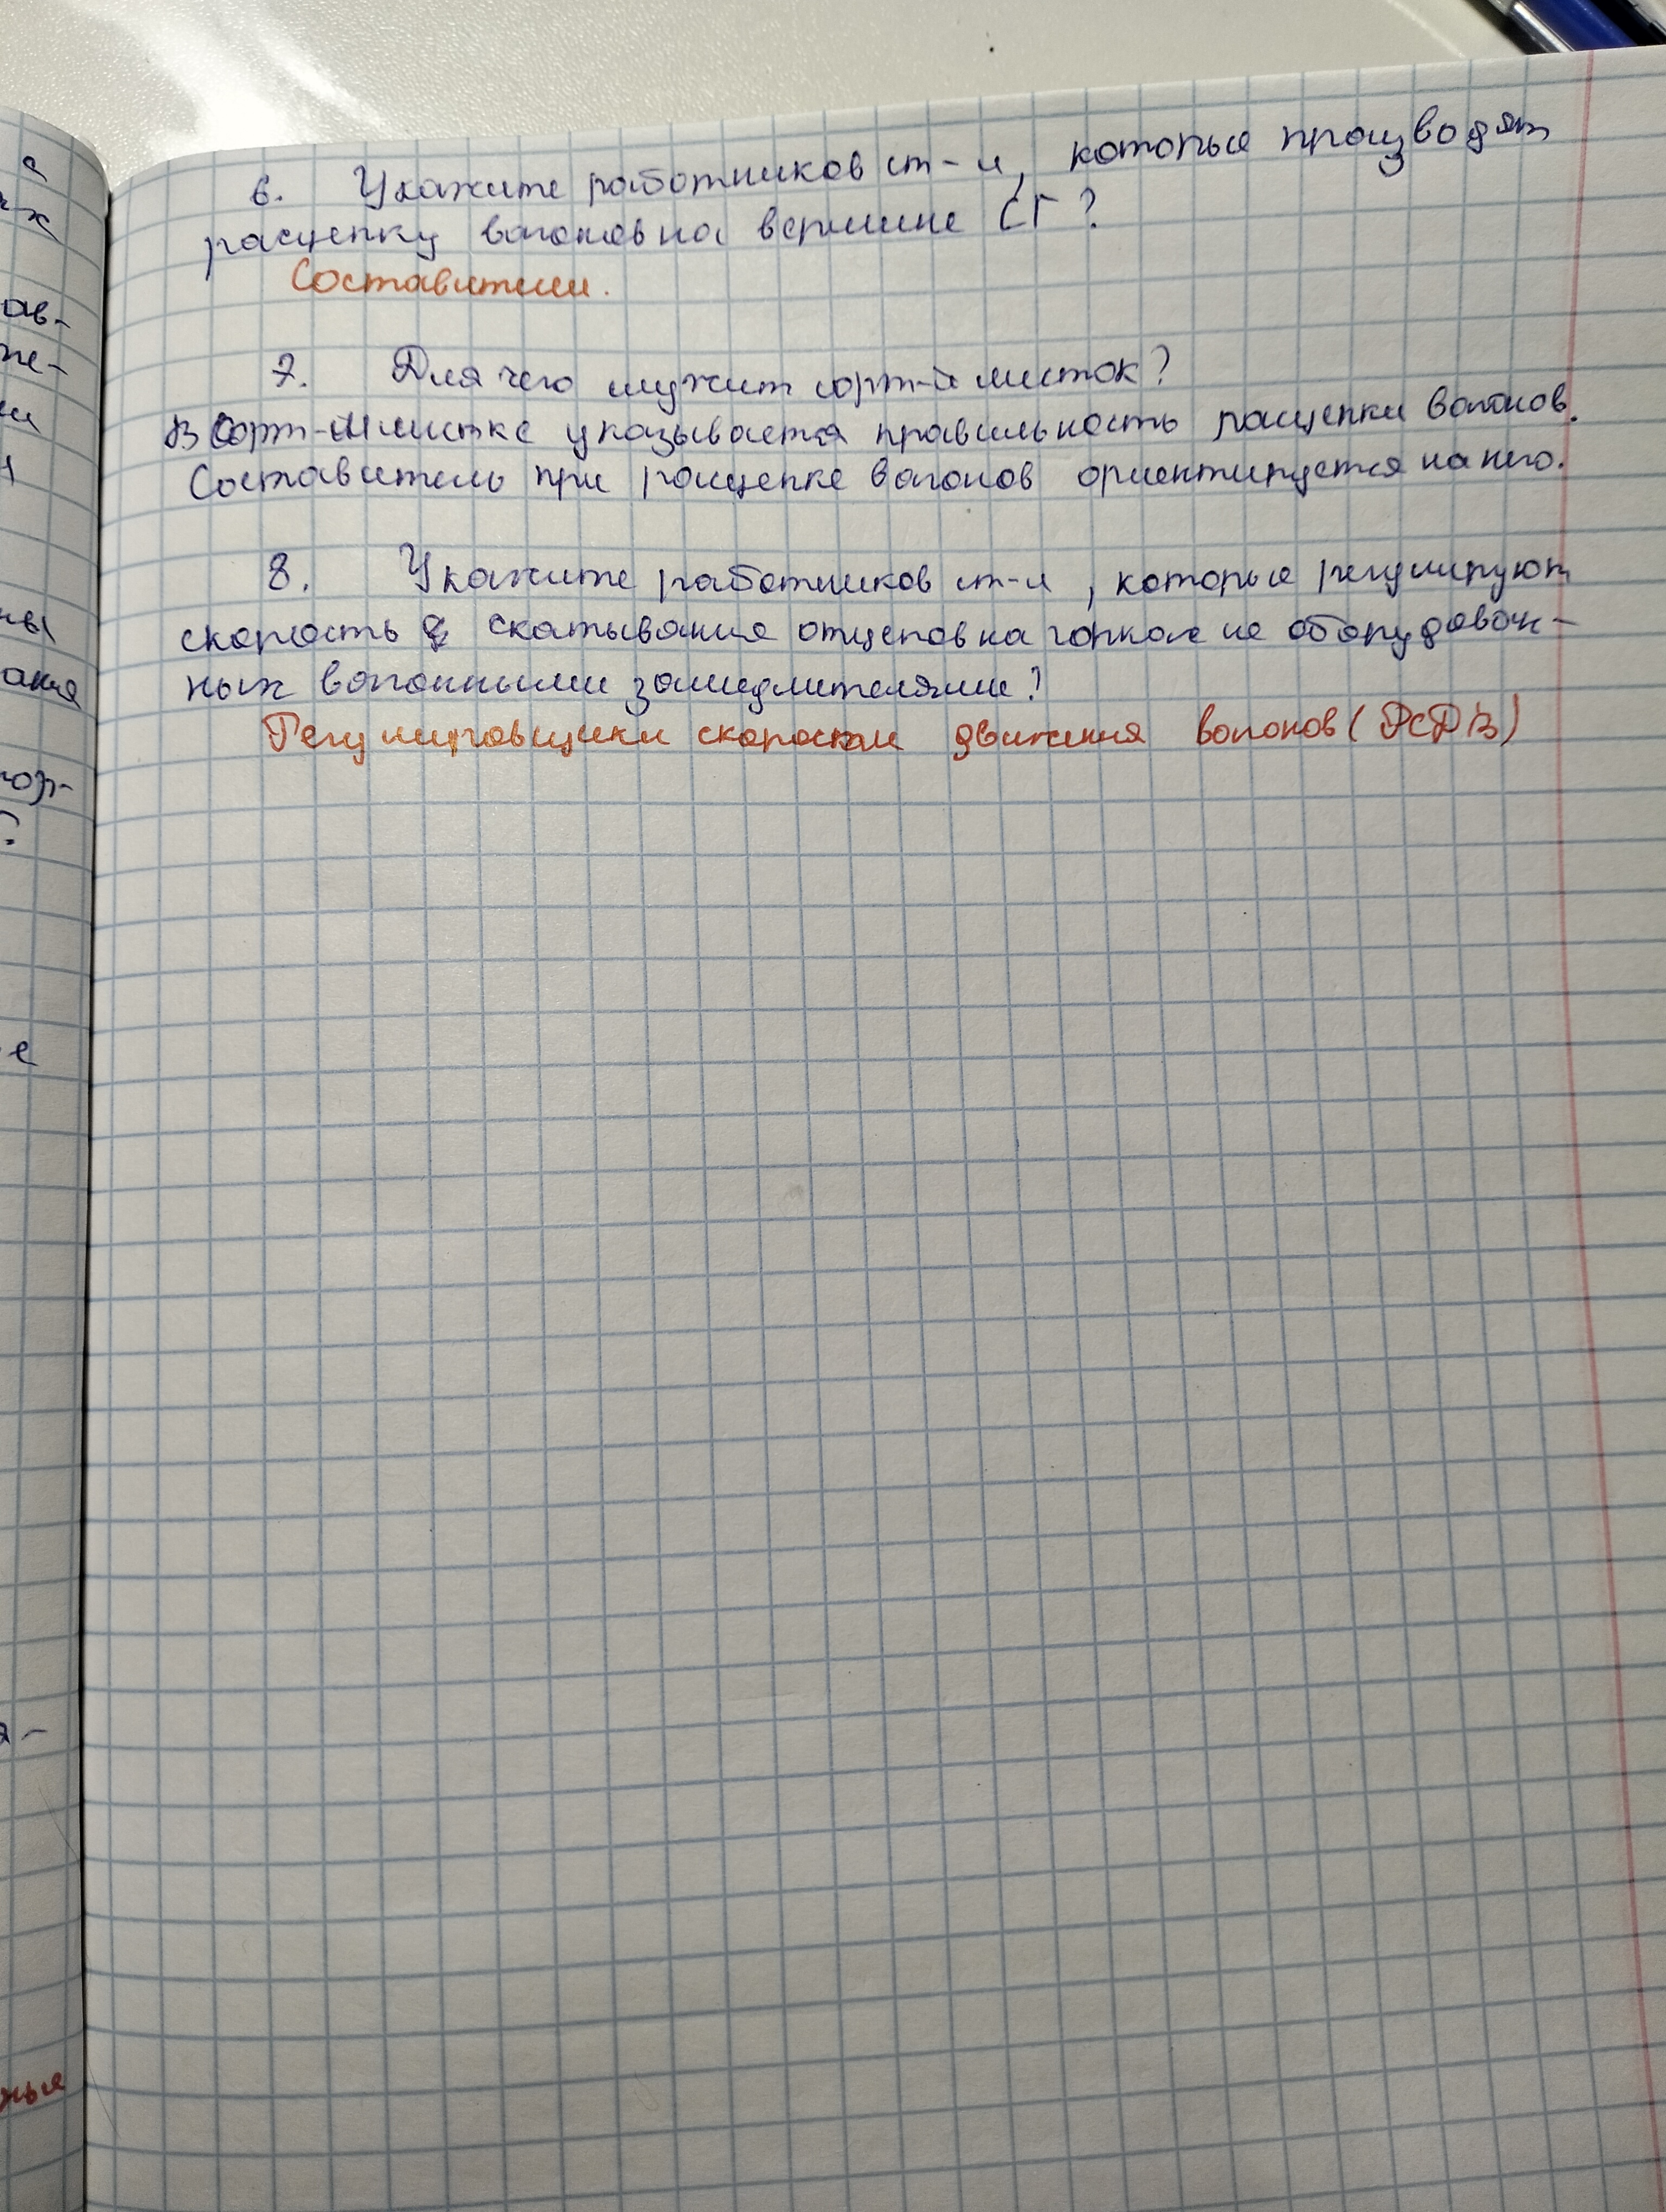 6. Укажите работников ст-и, которые производят
расцепку вагонов на вершине СГ?
Составители.
7. Для чего служит сорт-й листок?
В Сорт-м листке указывается правильность расцепки вагонов.
Составитель при расцепке вагонов ориентируется на него.
8. Укажите работников ст-и, которые регулируют
скорость скатывания отцепов на горках не оборудован-
ных вагонными замедлителями?
Регулировщики скорости движения вагонов (РСДВ)